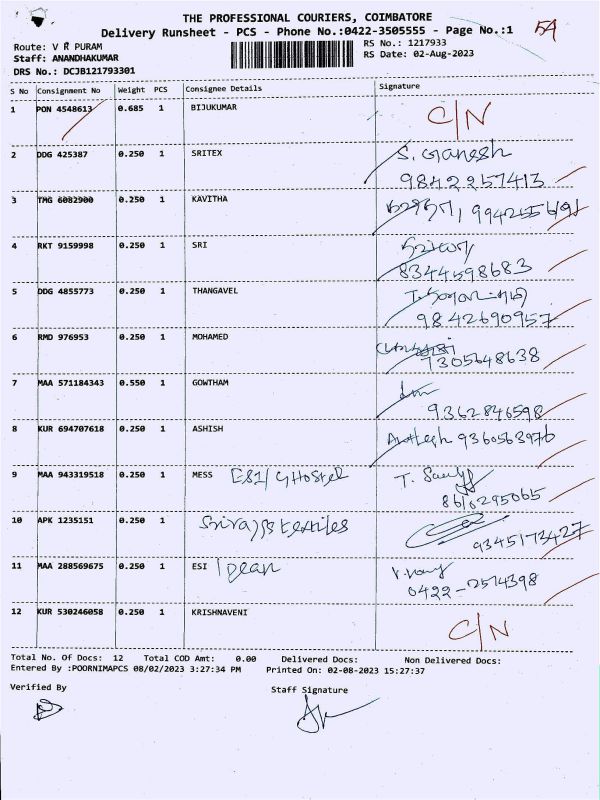 THE PROFESSIONAL COURIERS, COIMBATORE
Delivery Runsheet - PCS - Phone No.:0422-3505555 - Page No.:1
54
Route: V R PURAM
RS No.: 1217933
Staff: ANANDHAKUMAR
RS Date: 02-Aug-2023
DRS No.: DCJB121793301
S No Consignment No Weight PCS Consignee Details Signature
1 PON 4548613 0.685 1 BIJUKUMAR C/N
2 DDG 425387 0.250 1 SRITEX S. Ganesh
9842257413
3 TMG 6082900 0.250 1 KAVITHA
4 RKT 9159998 0.250 1 SRI
8344598683
5 DDG 4855773 0.250 1 THANGAVEL
9842690957
6 RMD 976953 0.250 1 MOHAMED
7305648638
7 MAA 571184343 0.550 1 GOWTHAM
9362846598
8 KUR 694707618 0.250 1 ASHISH 9360563976
9 MAA 943319518 0.250 1 MESS ESI/GHostel T.
8610295065
10 APK 1235151 0.250 1 textiles
9345173427
11 MAA 288569675 0.250 1 ESI Dean
0422-2574398
12 KUR 530246058 0.250 1 KRISHNAVENI C/N
Total No. Of Docs: 12 Total COD Amt: 0.00 Delivered Docs: Non Delivered Docs:
Entered By :POORNIMAPCS 08/02/2023 3:27:34 PM Printed On: 02-08-2023 15:27:37
Verified By Staff Signature